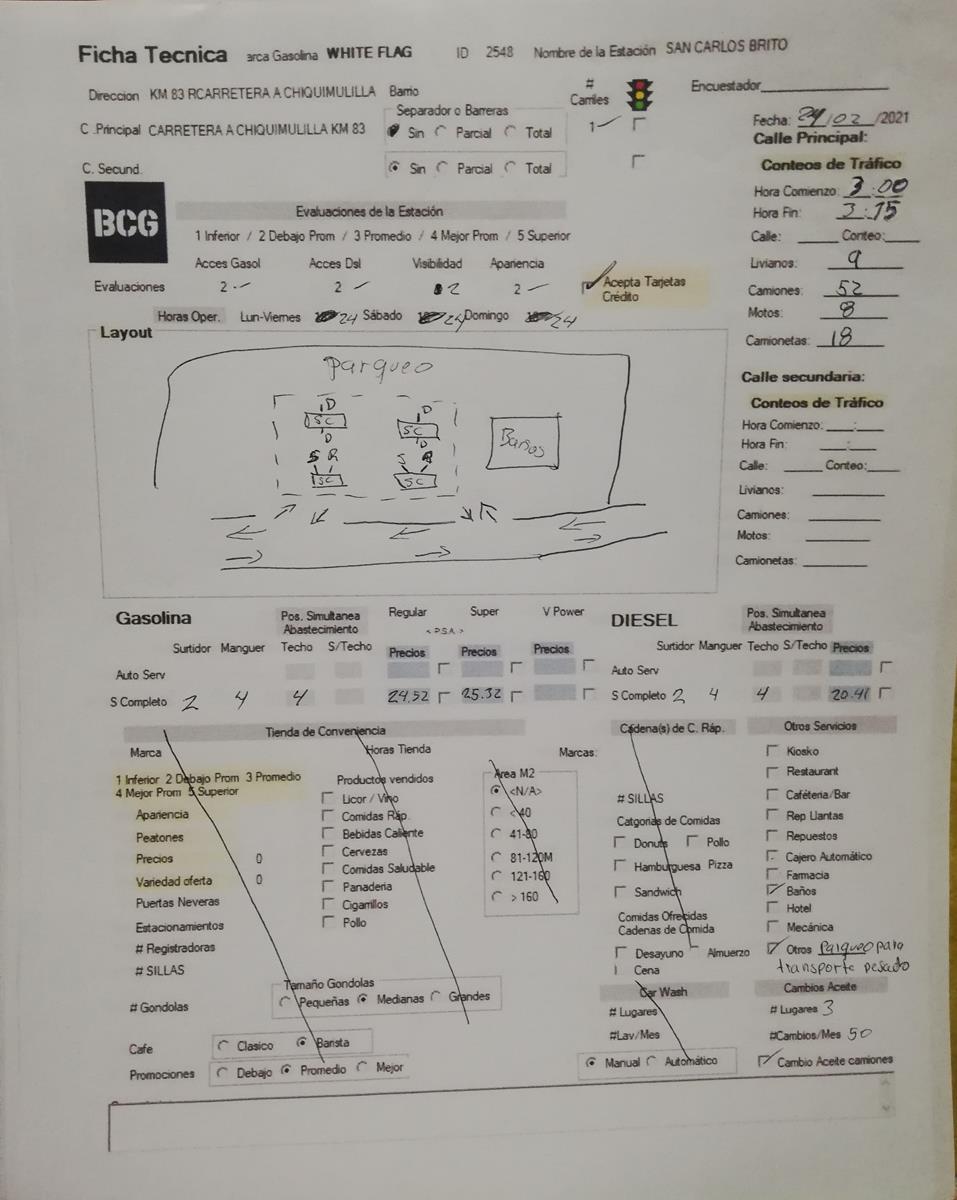 Ficha Tecnica arca Gasolina WHITE FLAG ID 2548 Nombre de la Estación SAN CARLOS BRITO
Direccion KM 83 RCARRETERA A CHIQUIMULILLA Barrio
# Carriles
Encuestador
Separador o Barreras
C .Principal CARRETERA A CHIQUIMULILLA KM 83
Sin Parcial Total
1
Fecha: 24/02/2021
Calle Principal:
C. Secund.
Sin Parcial Total
Conteos de Tráfico
Hora Comienzo: 3:00
Hora Fin: 3:15
Calle: Conteo:
Livianos: 9
Camiones: 52
Motos: 8
Camionetas: 18
BCG
Evaluaciones de la Estación
1 Inferior / 2 Debajo Prom / 3 Promedio / 4 Mejor Prom / 5 Superior
Acces Gasol Acces Dsl Visibilidad Apariencia
Evaluaciones 2 2 2 2
Acepta Tarjetas
Crédito
Horas Oper. Lun-Viernes 24 Sábado 24 Domingo 24
Layout
Parqueo
D D
SC SC
D D
S R S R
SC SC
Baños
Calle secundaria:
Conteos de Tráfico
Hora Comienzo: :
Hora Fin: :
Calle: Conteo:
Livianos:
Camiones:
Motos:
Camionetas:
Gasolina
Pos. Simultanea
Abastecimiento
Regular Super V Power
< P.S.A. >
Surtidor Manguer Techo S/Techo Precios Precios Precios
Auto Serv
S Completo 2 4 4 24.52 25.32
DIESEL
Pos. Simultanea
Abastecimiento
Surtidor Manguer Techo S/Techo Precios
Auto Serv
S Completo 2 4 4 20.41
Tienda de Conveniencia
Marca Horas Tienda Marcas:
1 Inferior 2 Debajo Prom 3 Promedio
4 Mejor Prom 5 Superior
Apariencia
Peatones
Precios 0
Variedad oferta 0
Puertas Neveras
Estacionamientos
# Registradoras
# SILLAS
# Gondolas
Productos vendidos
Licor / Vino
Comidas Ráp.
Bebidas Caliente
Cervezas
Comidas Saludable
Panaderia
Cigarrillos
Pollo
Area M2
<N/A>
< 40
41-80
81-120M
121-160
> 160
Tamaño Gondolas
Pequeñas Medianas Grandes
Cafe Clasico Barista
Promociones Debajo Promedio Mejor
Cadena(s) de C. Ráp.
# SILLAS
Catgorias de Comidas
Donuts Pollo
Hamburguesa Pizza
Sandwich
Comidas Ofrecidas
Cadenas de Comida
Desayuno Almuerzo
Cena
Car Wash
# Lugares
#Lav/Mes
Manual Automático
Otros Servicios
Kiosko
Restaurant
Caféteria/Bar
Rep Llantas
Repuestos
Cajero Automático
Farmacia
Baños
Hotel
Mecánica
Otros Parqueo para
transporte pesado
Cambios Aceite
# Lugares 3
#Cambios/Mes 50
Cambio Aceite camiones